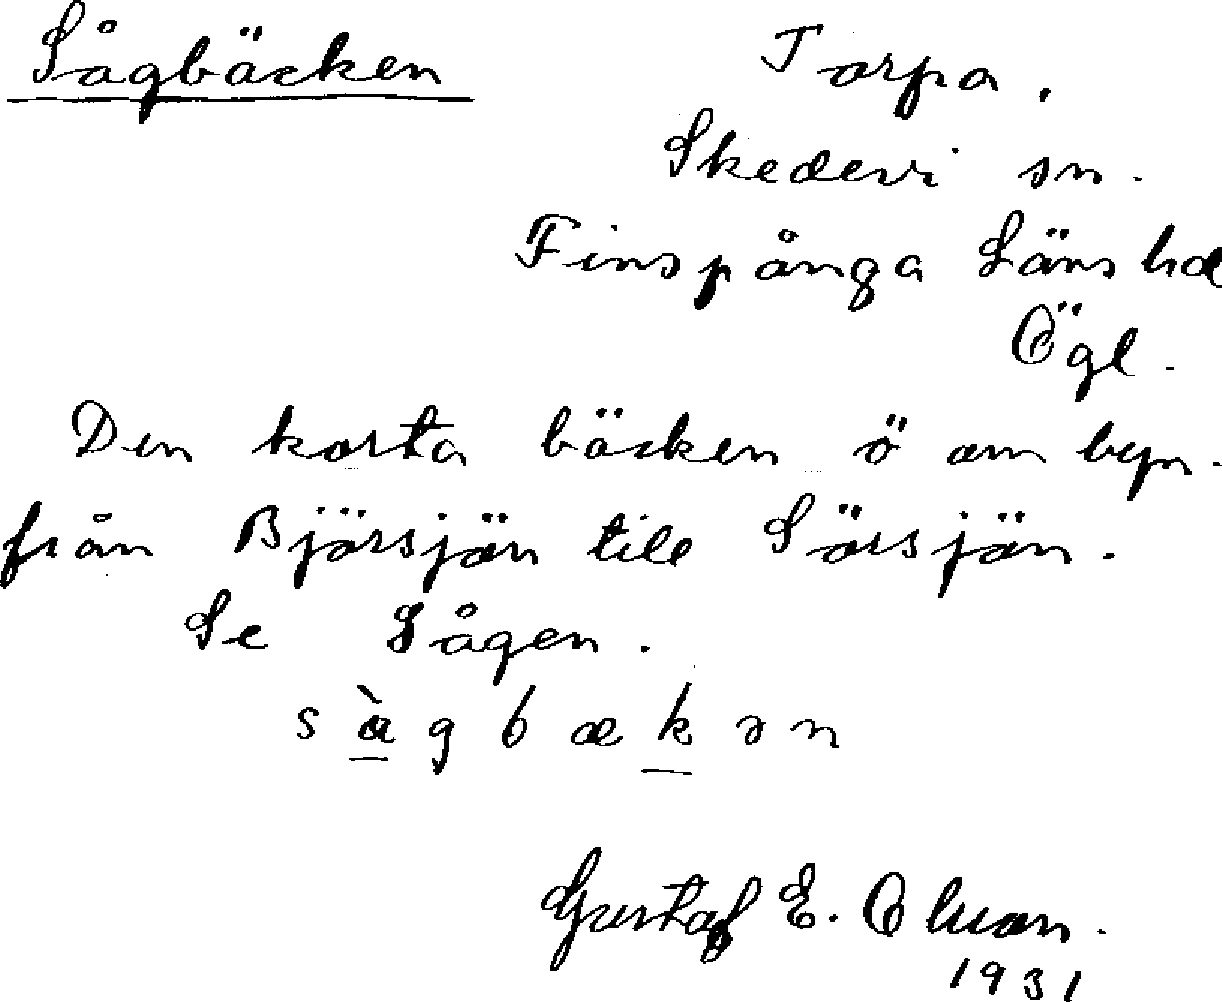 Sågbäcken
Torpa.
Skedevi sn.
Finspånga Läns hd
Ögl.
Den korta bäcken ö om byn.
från Björsjön till Sörsjön.
Se Sågen.
sàgbækən
Gustaf E. Olson.
1931